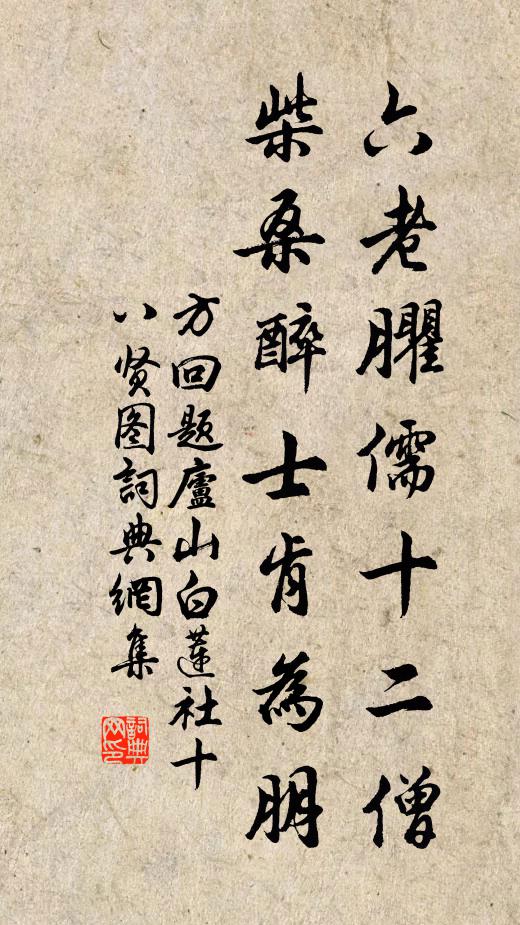 六老臞儒十二僧
柴桑醉士肯為朋
方回题廬山白蓮社十
八贤图詞典網集
詞典网印